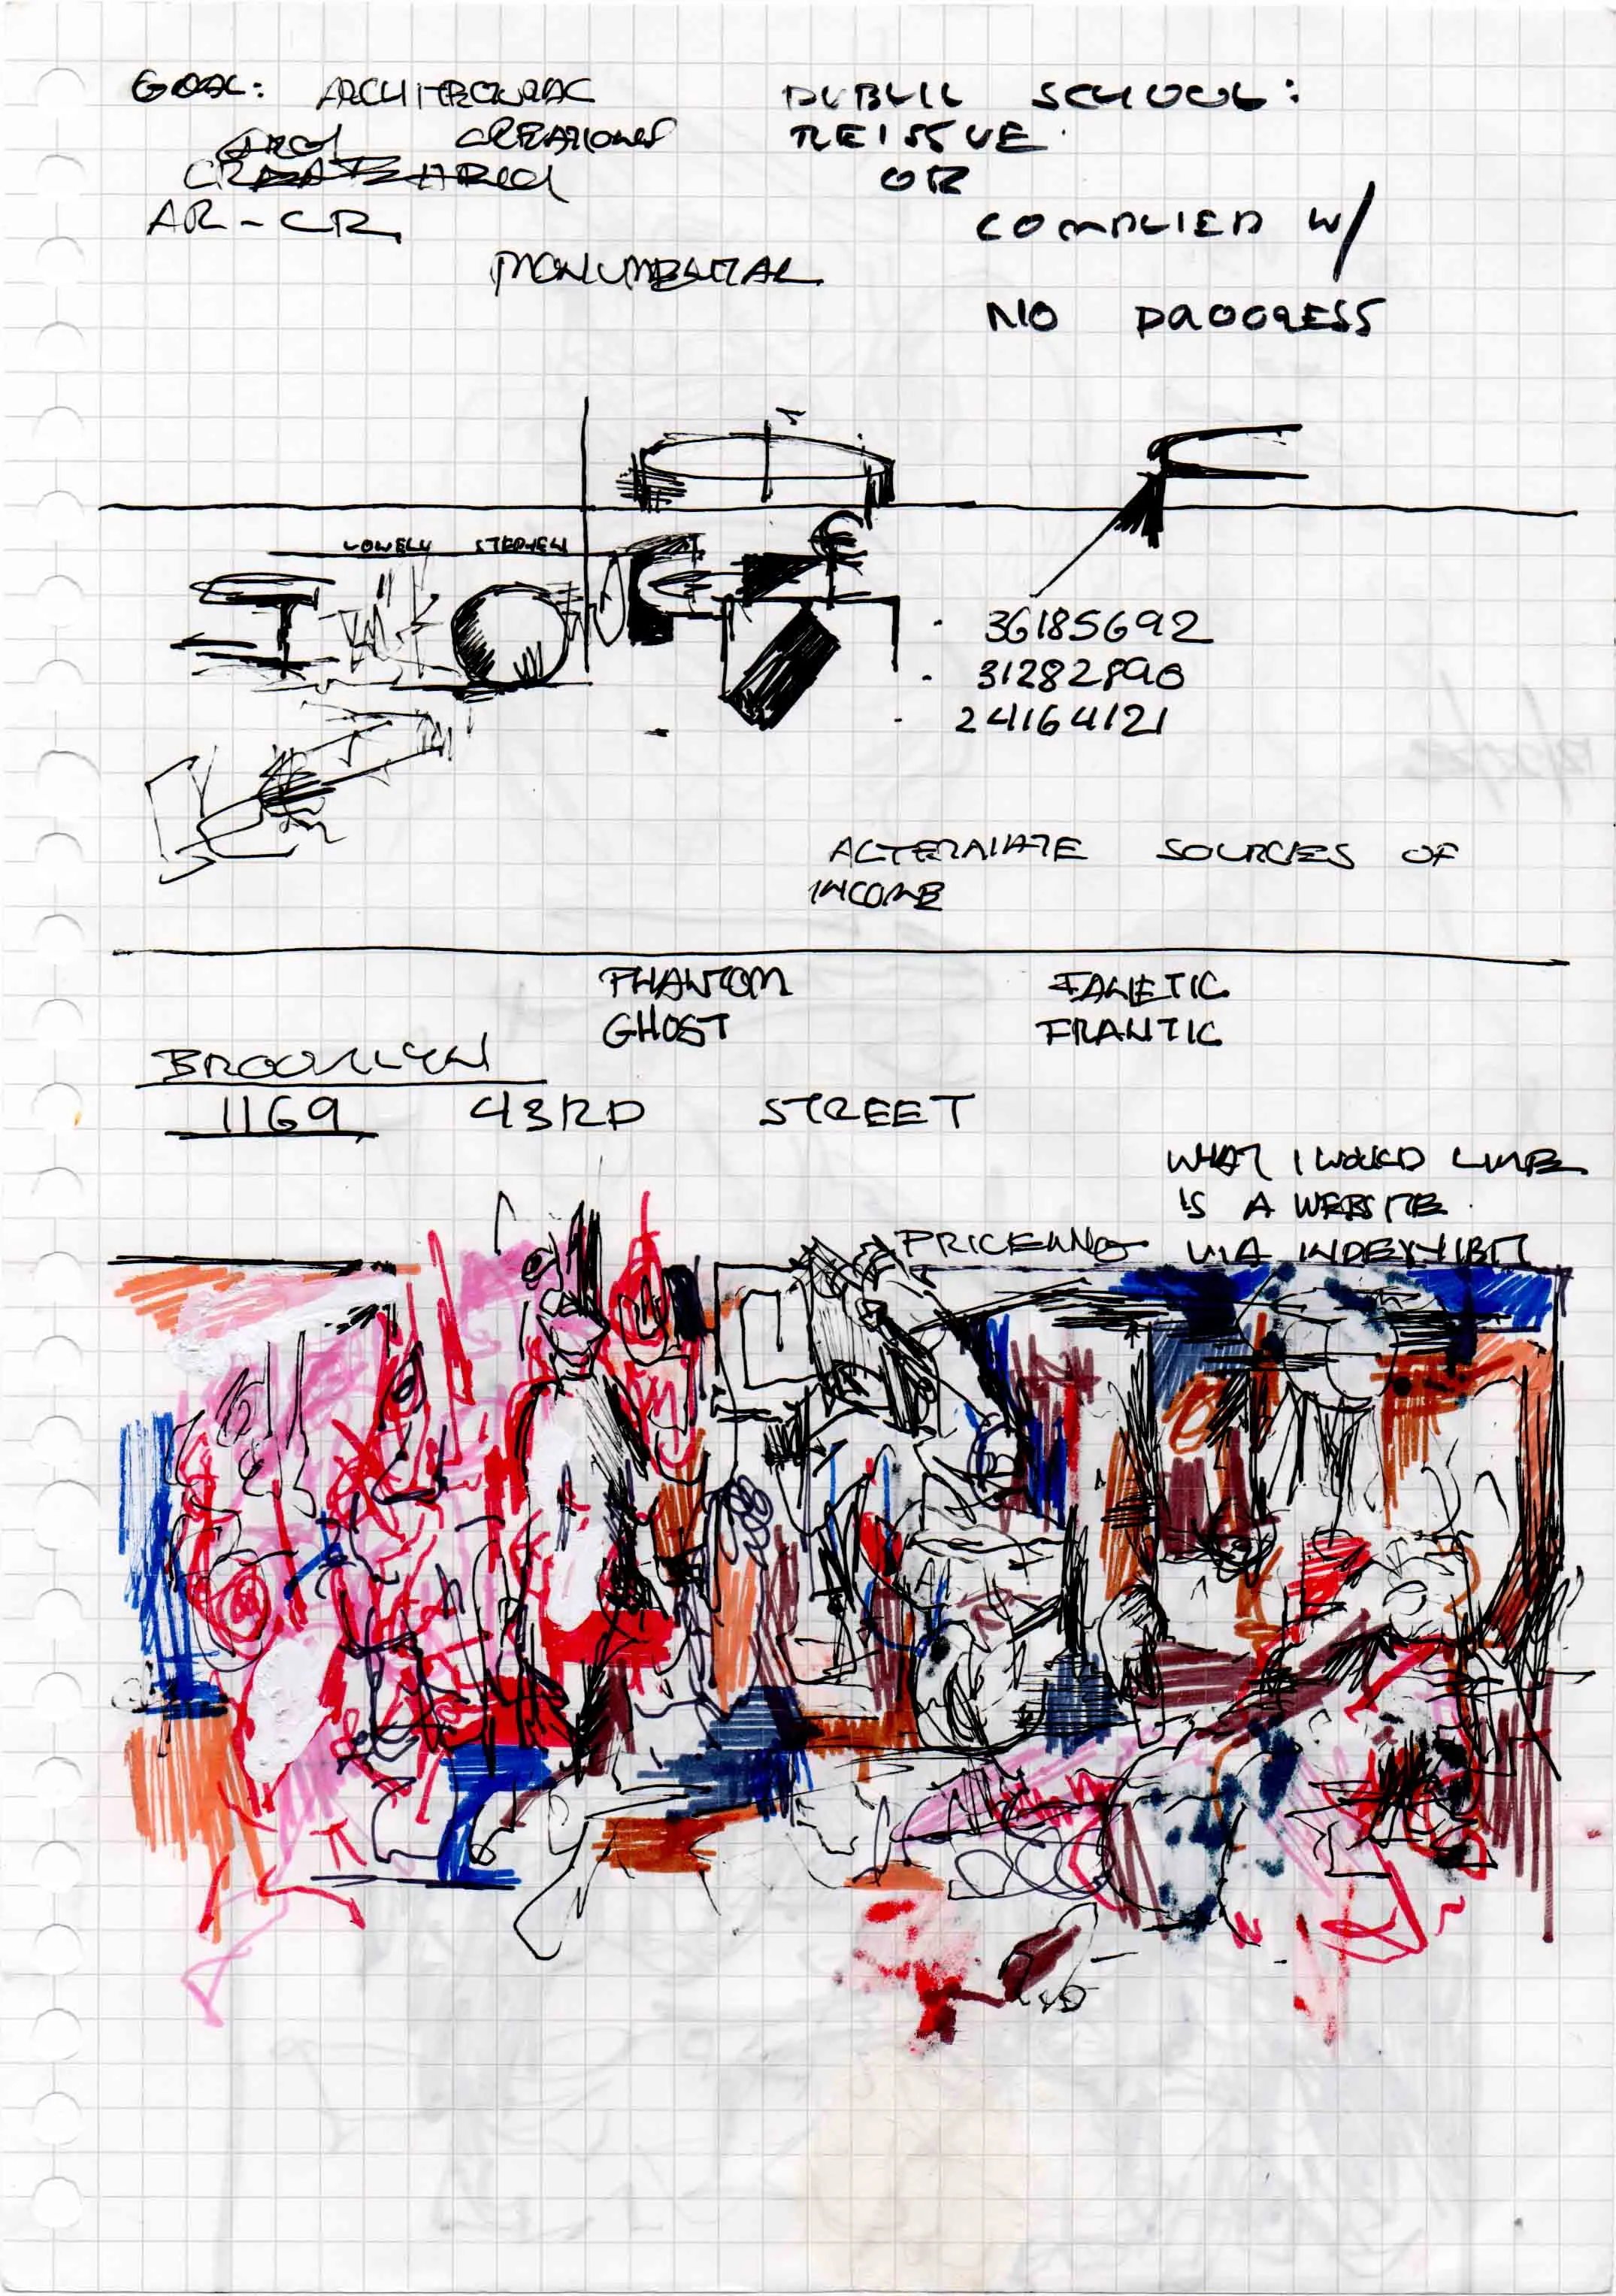 GOAL: ARCHITECTURAL
CREATIONS
AR-CR
MONUMENTAL
PUBLIC SCHOOL:
REISSUE
OR
COMPLIED W/
NO PROGRESS
LONELY STEPHEN
36185692
31282890
24164121
ALTERNATE SOURCES OF
INCOME
PHANTOM
GHOST
FANETIC
FRANTIC
BROOKLYN
1169 43RD STREET
WHAT I WOULD LIKE
IS A WEBSITE.
VIA INDEXHIBIT